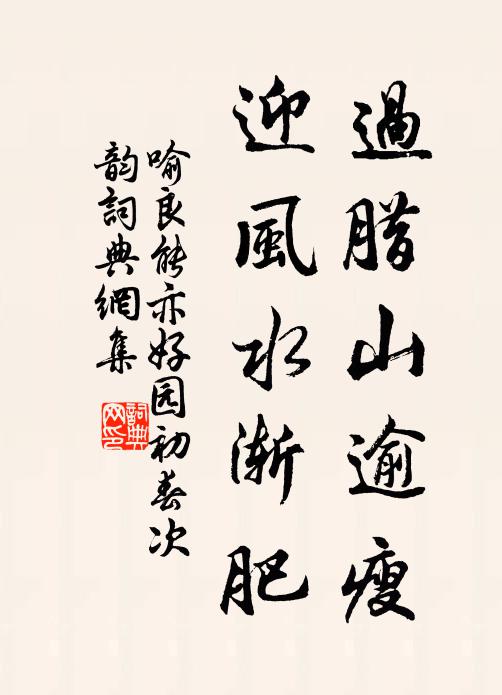 過腊山逾瘦
迎風水漸肥
喻良能亦好园初春次
韵詞典網集
詞典网印